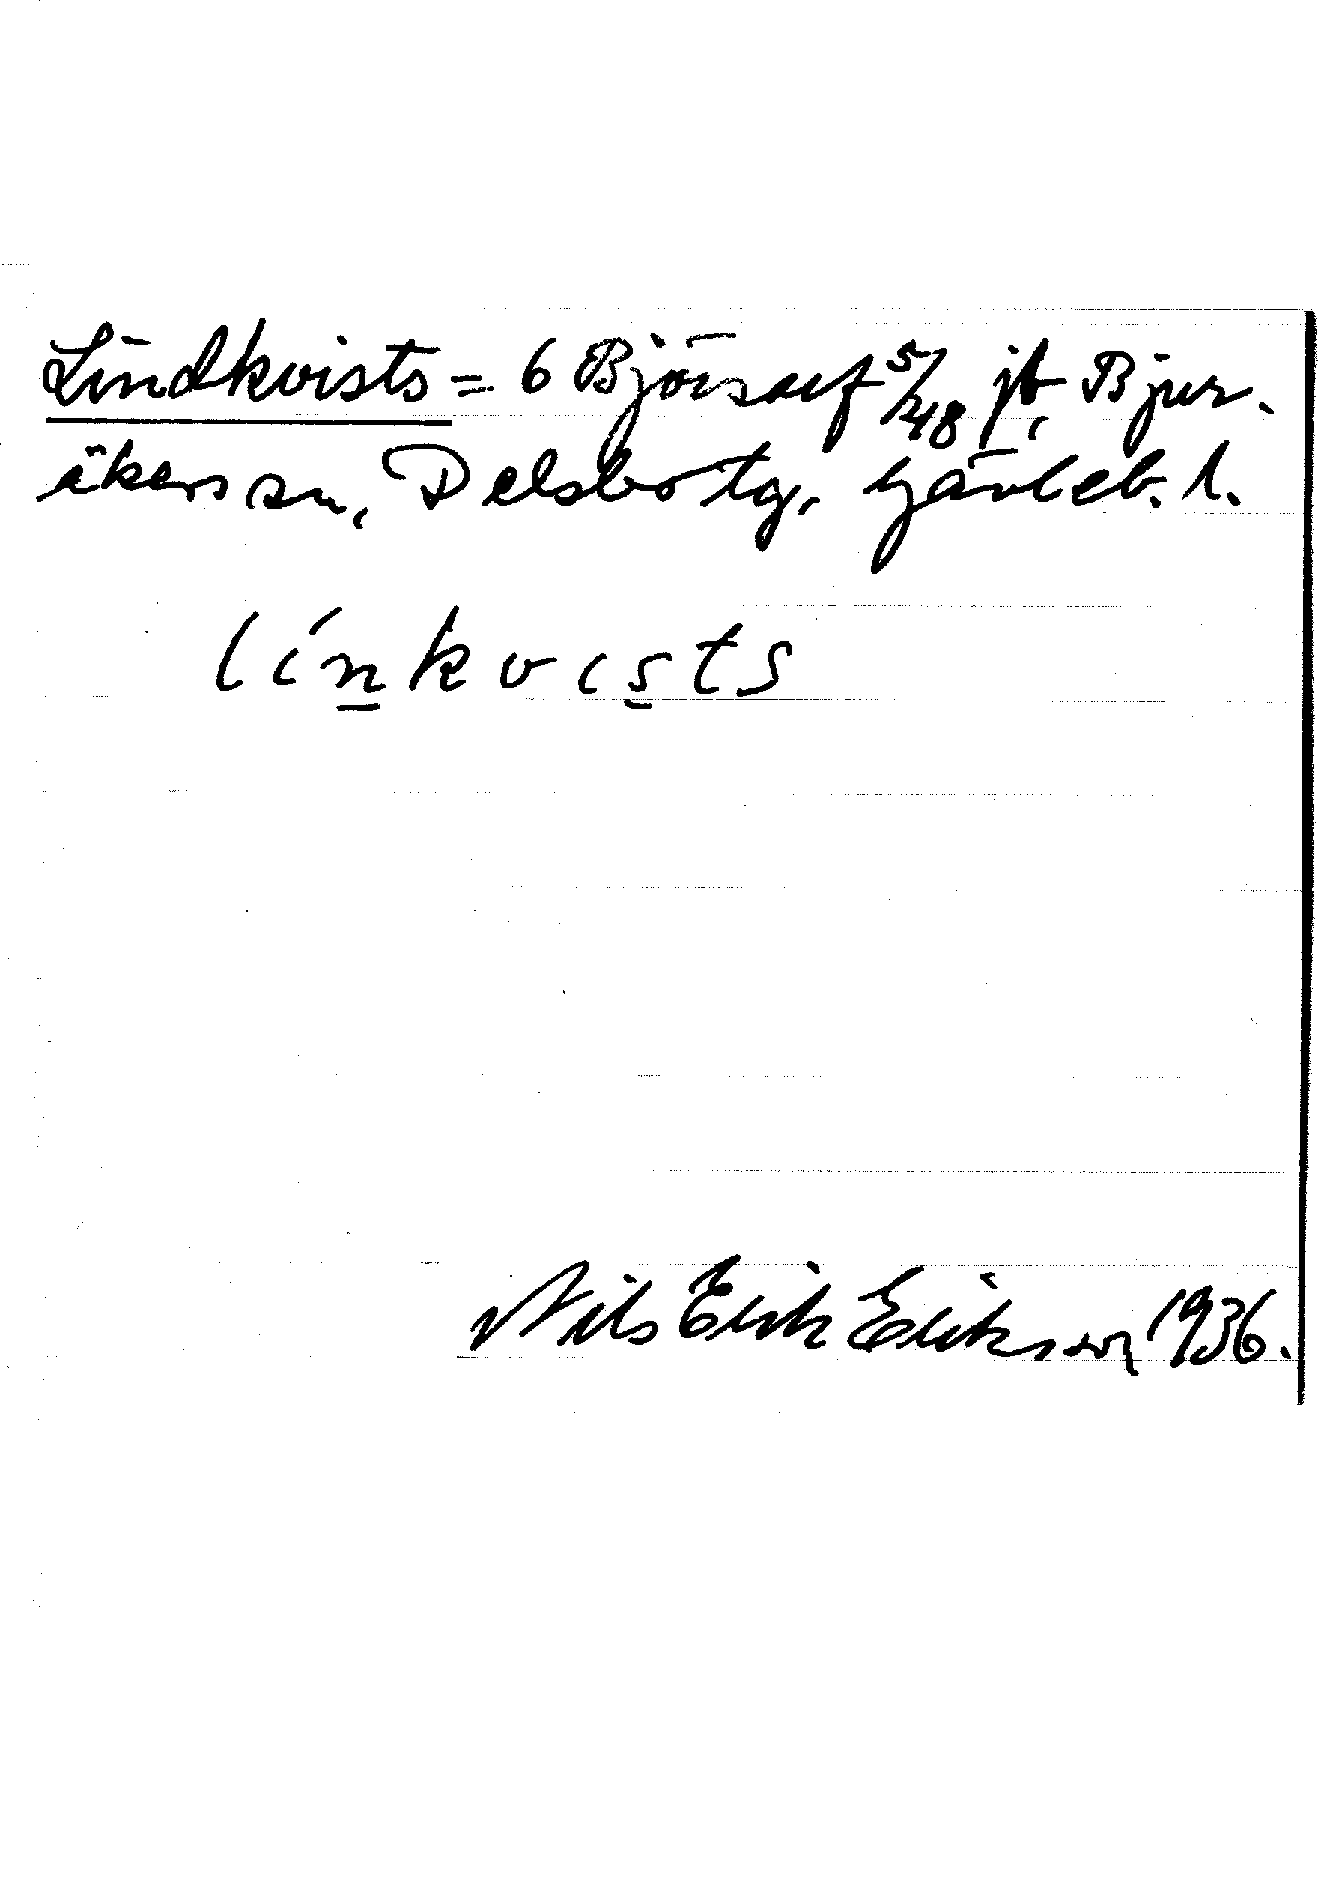 Lindkvists = 6 Björsarf 5/48 jb, Bjur-
åkers sn, Delsbo tg, Gävleb. l.
línkvists
Nils Erik Erikson 1936.